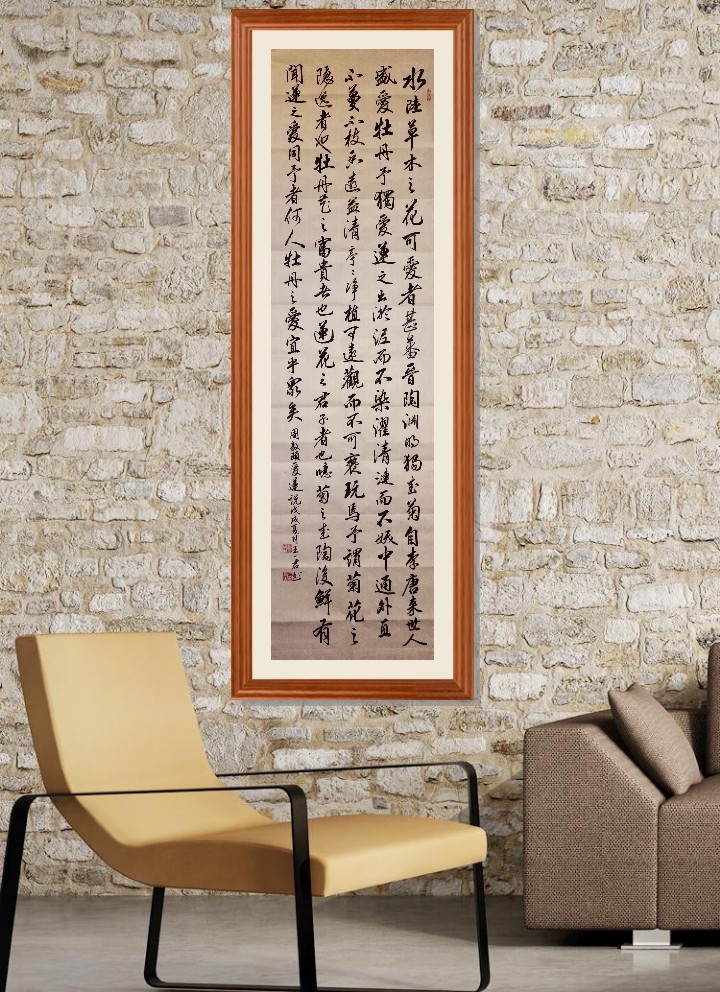 水陸草木之花可愛者甚蕃晉陶渊明獨爱菊自李唐来世人
盛愛牡丹予獨愛蓮之出淤泥而不染濯清漣而不妖中通外直
不蔓不枝香遠益清亭〻淨植可遠觀而不可褻玩焉予謂菊花之
隱逸者也牡丹花之富貴者也蓮花之君子者也噫菊之爱陶後鮮有
聞蓮之愛同予者何人牡丹之愛宜乎衆矣
周敦頤愛蓮説戊戌夏月王